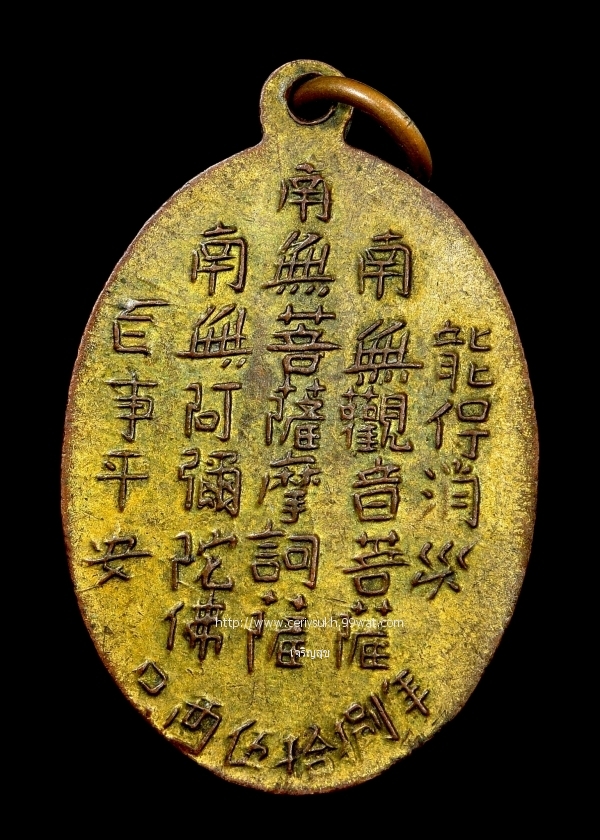 能保消災
南無觀音菩薩
南無菩薩摩訶薩
南無阿彌陀佛
百事平安
伍拾捌年
http://www.cerivsukh.99wat.com
เจริญสุข